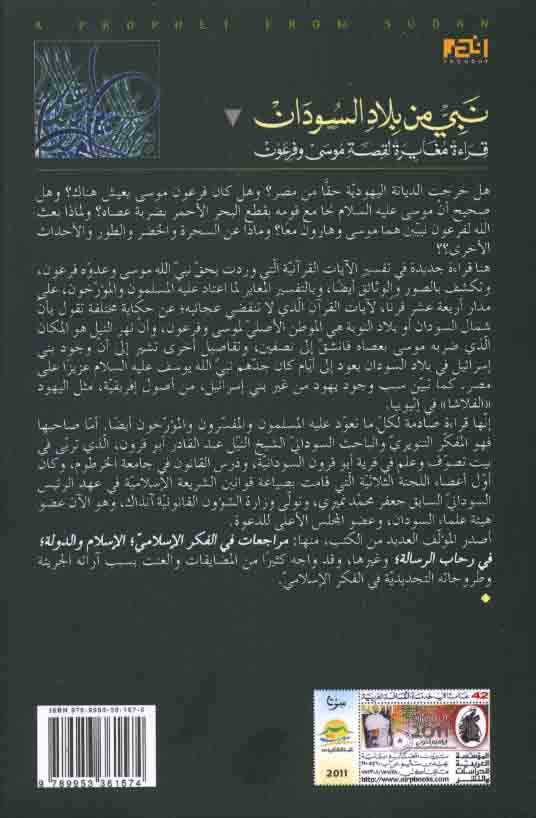 A PROPHET FROM SUDAN
نَبِيٌّ مِن بِلادِ السُّودَان
قِرَاءَة مُغَايِرَة لِقِصَّة مُوسَى وَفِرعَون
هل خرجت الديانة اليهوديّة حقًّا من مصر؟ وهل كان فرعون موسى يعيش هناك؟ وهل
صحيح أنّ موسى عليه السلام نجا مع قومه بقطع البحر الأحمر بضربة عصاه؟ ولماذا بعث
الله لفرعون نبيّين هما موسى وهارون معًا؟ وماذا عن السحرة والخضر والطور والأحداث
الأخرى؟؟
هنا قراءة جديدة في تفسير الآيات القرآنيّة الّتي وردت بحقّ نبيّ الله موسى وعدوّه فرعون،
وتكشف بالصور والوثائق أيضًا، وبالتفسير المغاير لما اعتاد عليه المسلمون والمؤرّخون، على
مدار أربعة عشر قرنا، لآيات القرآن الّذي لا تنقضي عجائبه؛ عن حكاية مختلفة تقول بأن
شمال السودان أو بلاد النوبة هي الموطن الأصليّ لموسى وفرعون، وأنّ نهر النيل هو المكان
الّذي ضربه موسى بعصاه فانشقّ إلى نصفين، وتفاصيل أخرى تشير إلى أن وجود بني
إسرائيل في بلاد السودان يعود إلى أيام كان جدّهم نبيّ الله يوسف عليه السلام عزيزًا على
مصر. كما تبيّن سبب وجود يهود من غير بني إسرائيل، من أصول إفريقيّة، مثل اليهود
«الفلاشا» في إثيوبيا.
إنّها قراءة صادمة لكلّ ما تعوّد عليه المسلمون والمفسّرون والمؤرّخون أيضًا. أمّا صاحبها
فهو المفكّر التنويريّ والباحث السودانيّ الشيخ النيّل عبد القادر أبو قرون، الّذي تربّى في
بيت تصوّف وعلم في قرية أبو قرون السودانيّة، ودرس القانون في جامعة الخرطوم، وكان
أوّل أعضاء اللجنة الثلاثيّة الّتي قامت بصياغة قوانين الشريعة الإسلاميّة في عهد الرئيس
السودانيّ السابق جعفر محمّد نميري، وتولّى وزارة الشؤون القانونيّة آنذاك، وهو الآن عضو
هيئة علماء السودان، وعضو المجلس الأعلى للدعوة.
أصدر المؤلّف العديد من الكتب، منها: مراجعات في الفكر الإسلاميّ؛ الإسلام والدولة؛
في رحاب الرسالة؛ وغيرها، وقد واجه كثيرًا من المضايقات والعنت بسبب آرائه الجريئة
وطروحاته التجديديّة في الفكر الإسلاميّ.
9 789953 361574
2011
42
2011
المؤسسة
العربية
للدراسات
والنشر
http://www.airpbooks.com